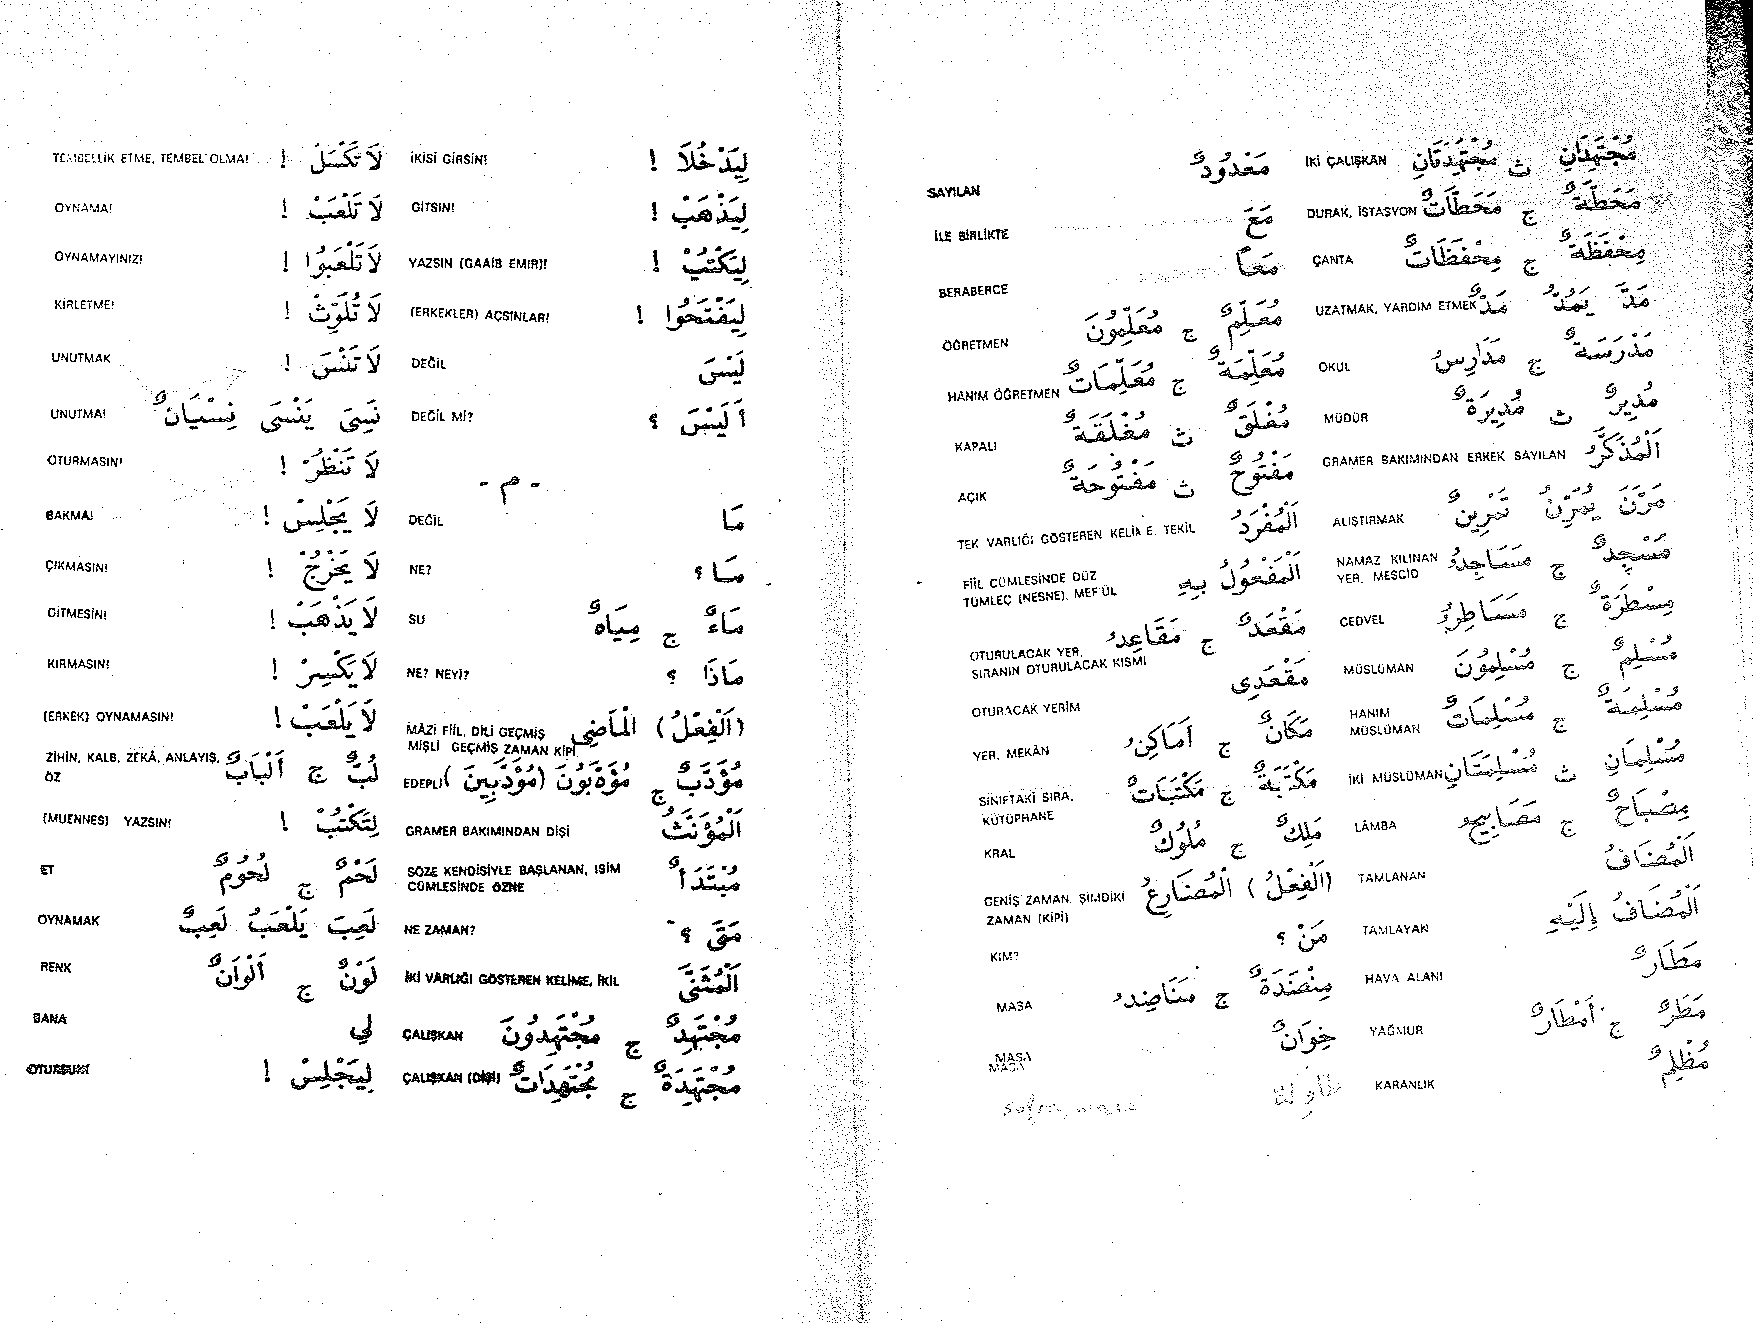 TEMBELLİK ETME, TEMBEL OLMA! لَا تَكْسَلْ !
OYNAMA! لَا تَلْعَبْ !
OYNAMAYINIZ! لَا تَلْعَبُوا !
KİRLETME! لَا تُلَوِّثْ !
UNUTMAK لَا تَنْسَ !
UNUTMA! نَسِيَ يَنْسَى نِسْيَانٌ
OTURMASIN! لَا تَنْظُرْ !
BAKMA! لَا يَجْلِسْ !
ÇIKMASIN! لَا يَخْرُجْ !
GİTMESİN! لَا يَذْهَبْ !
KIRMASIN! لَا يَكْسِرْ !
(ERKEK) OYNAMASIN! لَا يَلْعَبْ !
ZİHİN, KALB, ZEKÂ, ANLAYIŞ, ÖZ لُبٌّ ج أَلْبَابٌ
(MUENNES) YAZSIN! لِتَكْتُبْ !
ET لَحْمٌ ج لُحُومٌ
OYNAMAK لَعِبَ يَلْعَبُ لَعِبٌ
RENK لَوْنٌ ج أَلْوَانٌ
BANA لِي
OTURSUN! لِيَجْلِسْ !
İKİSİ GİRSİN! لِيَدْخُلَا !
GİTSİN! لِيَذْهَبْ !
YAZSIN (GAAİB EMİR)! لِيَكْتُبْ !
(ERKEKLER) AÇSINLAR! لِيَفْتَحُوا !
DEĞİL لَيْسَ
DEĞİL Mİ? أَلَيْسَ ؟
- م -
DEĞİL مَا
NE? مَا ؟
SU مَاءٌ ج مِيَاهٌ
NE? NEYİ? مَاذَا ؟
MÂZİ FİİL, DİLİ GEÇMİŞ (الْفِعْلُ) الْمَاضِي
MİŞLİ GEÇMİŞ ZAMAN KİPİ
EDEPLİ مُؤَدَّبٌ ج مُؤَدَّبُونَ (مُؤَدَّبِينَ)
GRAMER BAKIMINDAN DİŞİ الْمُؤَنَّثُ
SÖZE KENDİSİYLE BAŞLANAN, İSİM CÜMLESİNDE ÖZNE مُبْتَدَأٌ
NE ZAMAN? مَتَى ؟
İKİ VARLIĞI GÖSTEREN KELİME, İKİL الْمُثَنَّى
ÇALIŞKAN مُجْتَهِدٌ ج مُجْتَهِدُونَ
ÇALIŞKAN (DİŞİ) مُجْتَهِدَةٌ ج مُجْتَهِدَاتٌ
İKİ ÇALIŞKAN مُجْتَهِدَانِ ث مُجْتَهِدَتَانِ
DURAK, İSTASYON مَحَطَّةٌ ج مَحَطَّاتٌ
ÇANTA مِحْفَظَةٌ ج مِحْفَظَاتٌ
UZATMAK, YARDIM ETMEK مَدَّ يَمُدُّ مَدٌّ
OKUL مَدْرَسَةٌ ج مَدَارِسُ
MÜDÜR مُدِيرٌ ث مُدِيرَةٌ
GRAMER BAKIMINDAN ERKEK SAYILAN الْمُذَكَّرُ
ALIŞTIRMAK مَرَّنَ يُمَرِّنُ تَمْرِينٌ
NAMAZ KILINAN YER, MESCİD مَسْجِدٌ ج مَسَاجِدُ
CEDVEL مِسْطَرَةٌ ج مَسَاطِرُ
MÜSLÜMAN مُسْلِمٌ ج مُسْلِمُونَ
HANIM MÜSLÜMAN مُسْلِمَةٌ ج مُسْلِمَاتٌ
İKİ MÜSLÜMAN مُسْلِمَانِ ث مُسْلِمَتَانِ
LÂMBA مِصْبَاحٌ ج مَصَابِيحُ
TAMLANAN الْمُضَافُ
TAMLAYAN الْمُضَافُ إِلَيْهِ
HAVA ALANI مَطَارٌ
YAĞMUR مَطَرٌ ج أَمْطَارٌ
KARANLIK مُظْلِمٌ
SAYILAN مَعْدُودٌ
İLE BİRLİKTE مَعَ
BERABERCE مَعاً
ÖĞRETMEN مُعَلِّمٌ ج مُعَلِّمُونَ
HANIM ÖĞRETMEN مُعَلِّمَةٌ ج مُعَلِّمَاتٌ
KAPALI مُغْلَقٌ ث مُغْلَقَةٌ
AÇIK مَفْتُوحٌ ث مَفْتُوحَةٌ
TEK VARLIĞI GÖSTEREN KELİME, TEKİL الْمُفْرَدُ
FİİL CÜMLESİNDE DÜZ TÜMLEÇ (NESNE), MEF'ÛL الْمَفْعُولُ بِهِ
OTURULACAK YER, SIRANIN OTURULACAK KISMI مَقْعَدٌ ج مَقَاعِدُ
OTURACAK YERİM مَقْعَدِي
YER, MEKÂN مَكَانٌ ج أَمَاكِنُ
SINIFTAKİ SIRA, KÜTÜPHANE مَكْتَبَةٌ ج مَكْتَبَاتٌ
KRAL مَلِكٌ ج مُلُوكٌ
GENİŞ ZAMAN, ŞİMDİKİ ZAMAN (KİPİ) (الْفِعْلُ) الْمُضَارِعُ
KİM? مَنْ ؟
MASA مِنْضَدَةٌ ج مَنَاضِدُ
MASA خِوَانٌ
MASA